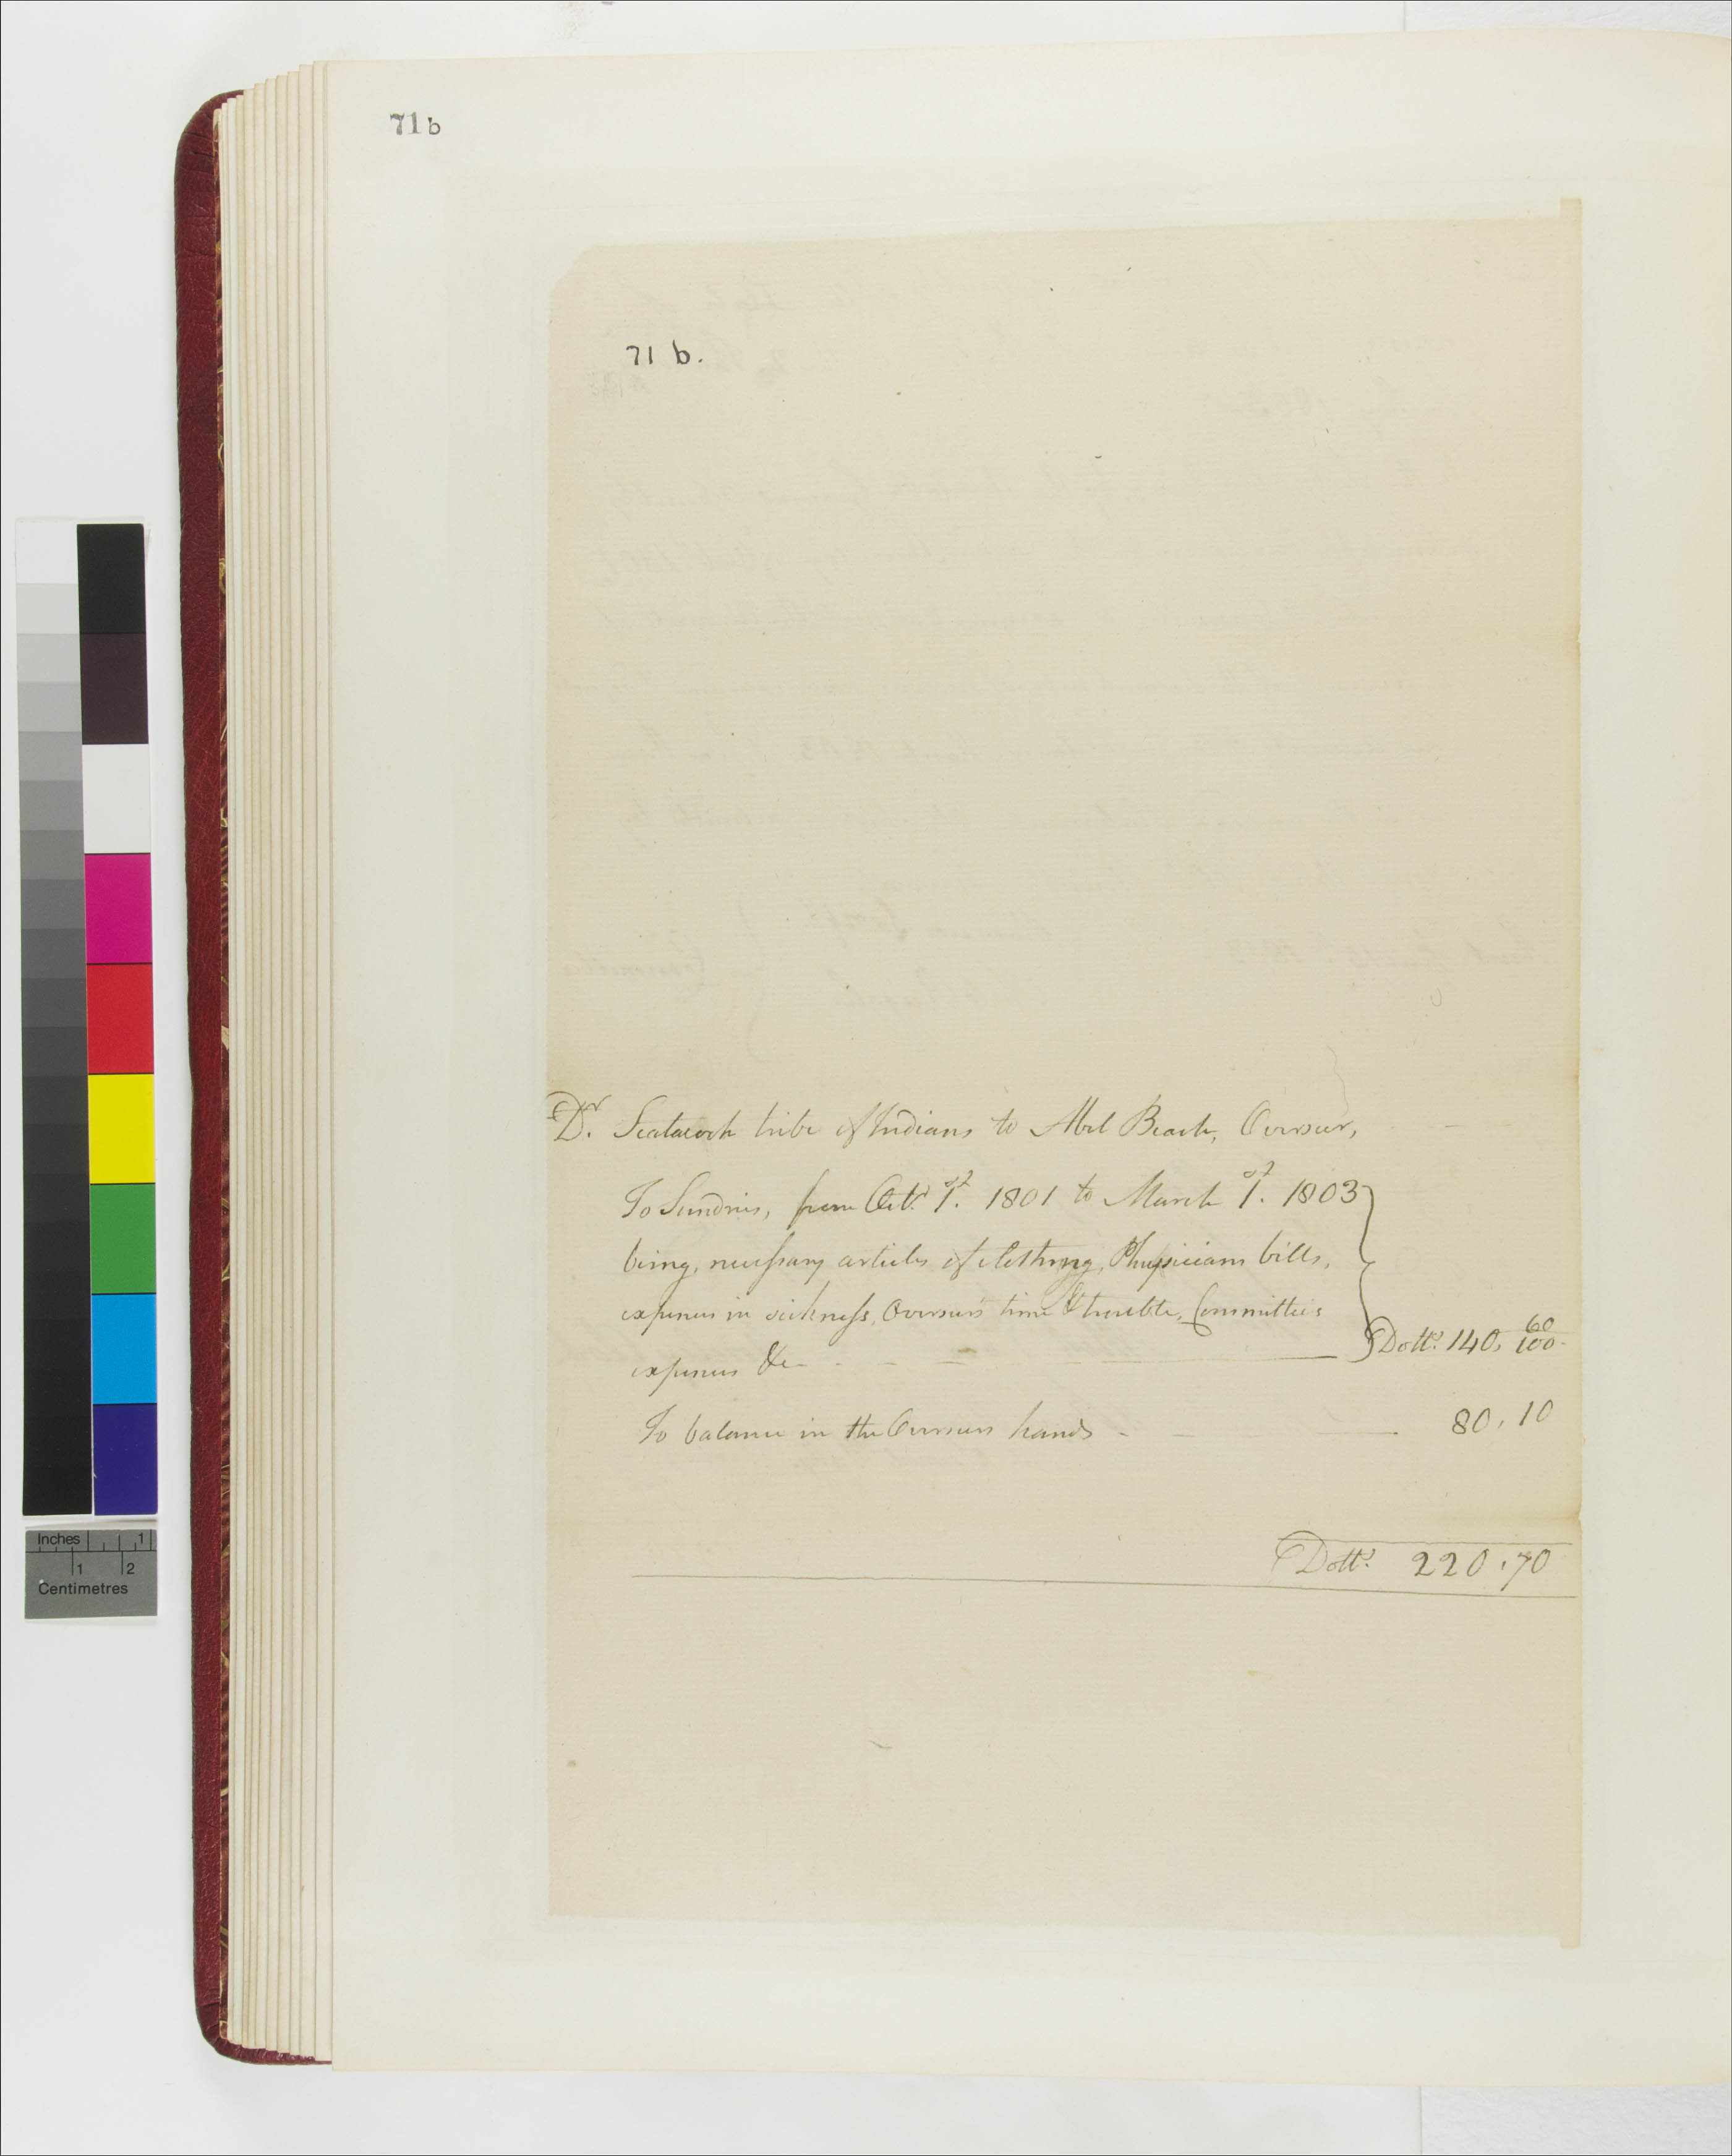 71 b
71 b.
Dr. Scatacook tribe of Indians to Abel Beach, Overseer,
To Sundries, from Octr. 1st. 1801 to March 1st. 1803
being, necessary articles of clothing, Physicians bills,
expences in sickness, Overseers time & trouble, Committees
expences &c - - - - Dolls. 140, 60/100 -
To balance in the Overseers hands - - - 80. 10
Dolls. 220.70
Inches 1
1 2
Centimetres